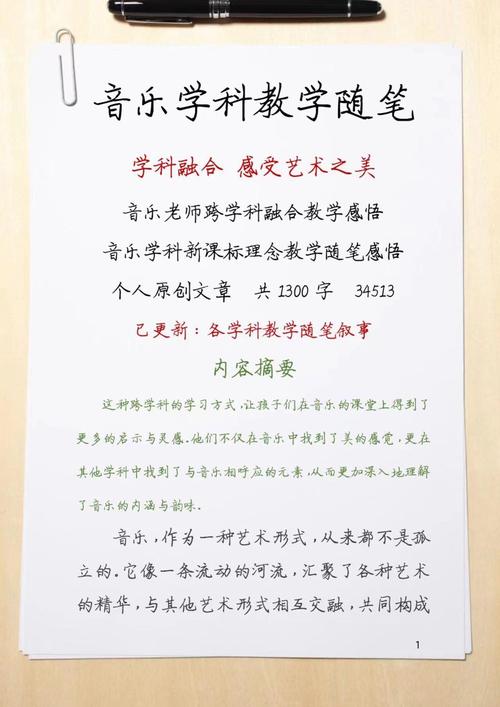 音乐学科教学随笔
学科融合 感受艺术之美
音乐老师跨学科融合教学感悟
音乐学科新课标理念教学随笔感悟
个人原创文章 共1300字 34513
已更新：各学科教学随笔叙事
内容摘要
这种跨学科的学习方式，让孩子们在音乐的课堂上得到了
更多的启示与灵感。他们不仅在音乐中找到了美的感觉，更在
其他学科中找到了与音乐相呼应的元素，从而更加深入地理解
了音乐的内涵与韵味。
音乐，作为一种艺术形式，从来都不是孤
立的。它像一条流动的河流，汇聚了各种艺术
的精华，与其他艺术形式相互交融，共同构成
1